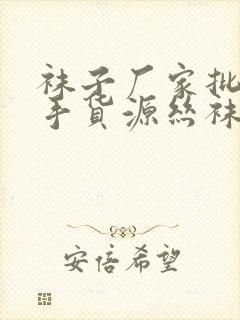 袜子厂家批
手货源丝袜
安倍希望